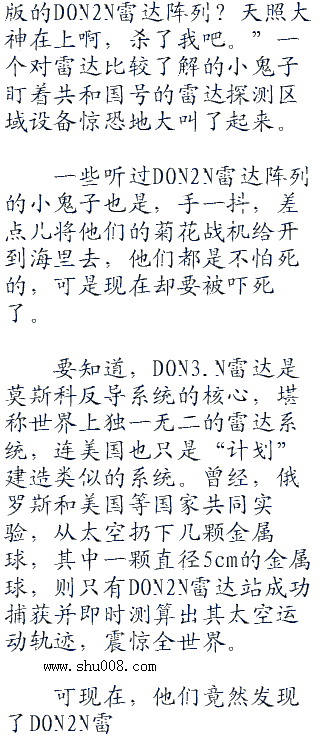 版的DON2N雷达阵列？天照大
神在上啊，杀了我吧。”一
个对雷达比较了解的小鬼子
盯着共和国号的雷达探测区
域设备惊恐地大叫了起来。
一些听过DON2N雷达阵列
的小鬼子也是，手一抖，差
点儿将他们的菊花战机给开
到海里去，他们都是不怕死
的，可是现在却要被吓死
了。
要知道，DON3.N雷达是
莫斯科反导系统的核心，堪
称世界上独一无二的雷达系
统，连美国也只是“计划”
建造类似的系统。曾经，俄
罗斯和美国等国家共同实
验，从太空扔下几颗金属
球，其中一颗直径5cm的金属
球，则只有DON2N雷达站成功
捕获并即时测算出其太空运
动轨迹，震惊全世界。
www.shu008.com
可现在，他们竟然发现
了DON2N雷